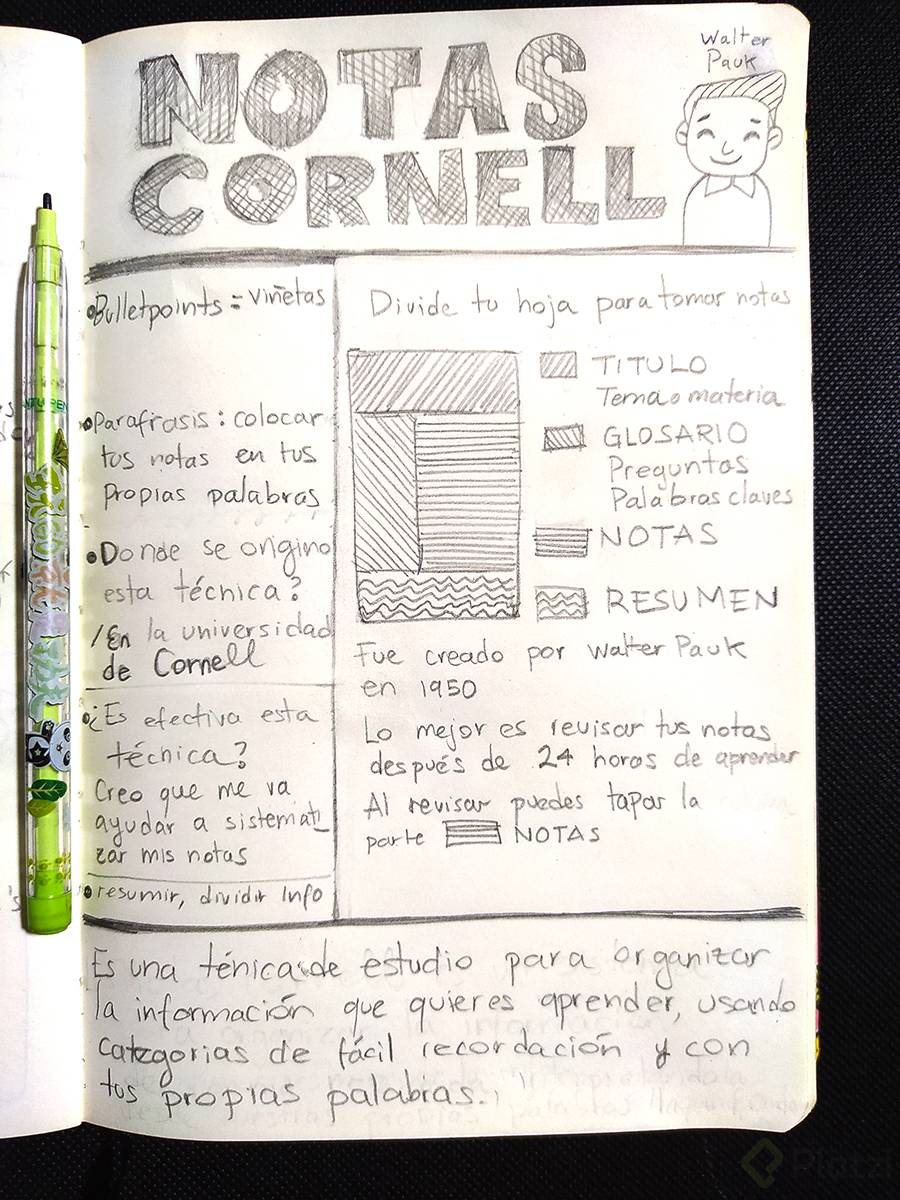 NOTAS
CORNELL
Walter
Pauk
•Bulletpoints = viñetas
•Parafrasis : colocar
tus notas en tus
propias palabras
•Donde se origino
esta técnica?
/En la universidad
de Cornell
•¿Es efectiva esta
técnica?
Creo que me va
ayudar a sistemati_
zar mis notas
•resumir, dividir info
Divide tu hoja para tomar notas
TITULO
Tema o materia
GLOSARIO
Preguntas
Palabras claves
NOTAS
RESUMEN
Fue creado por Walter Pauk
en 1950
Lo mejor es revisar tus notas
después de 24 horas de aprender
Al revisar puedes tapar la
parte NOTAS
Es una ténica de estudio para organizar
la información que quieres aprender, usando
categorias de fácil recordación y con
tus propias palabras.
Platzi